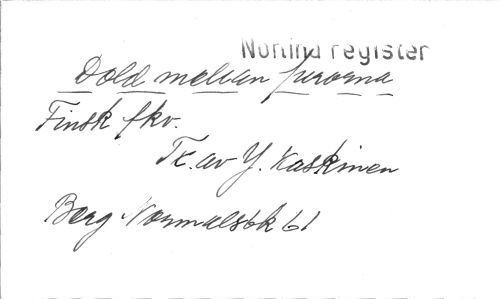 Nordiska register
Dold mellan furorna
Finsk fkv.
Tt. av Y. Kaskinen
Berg Normalsbk 61